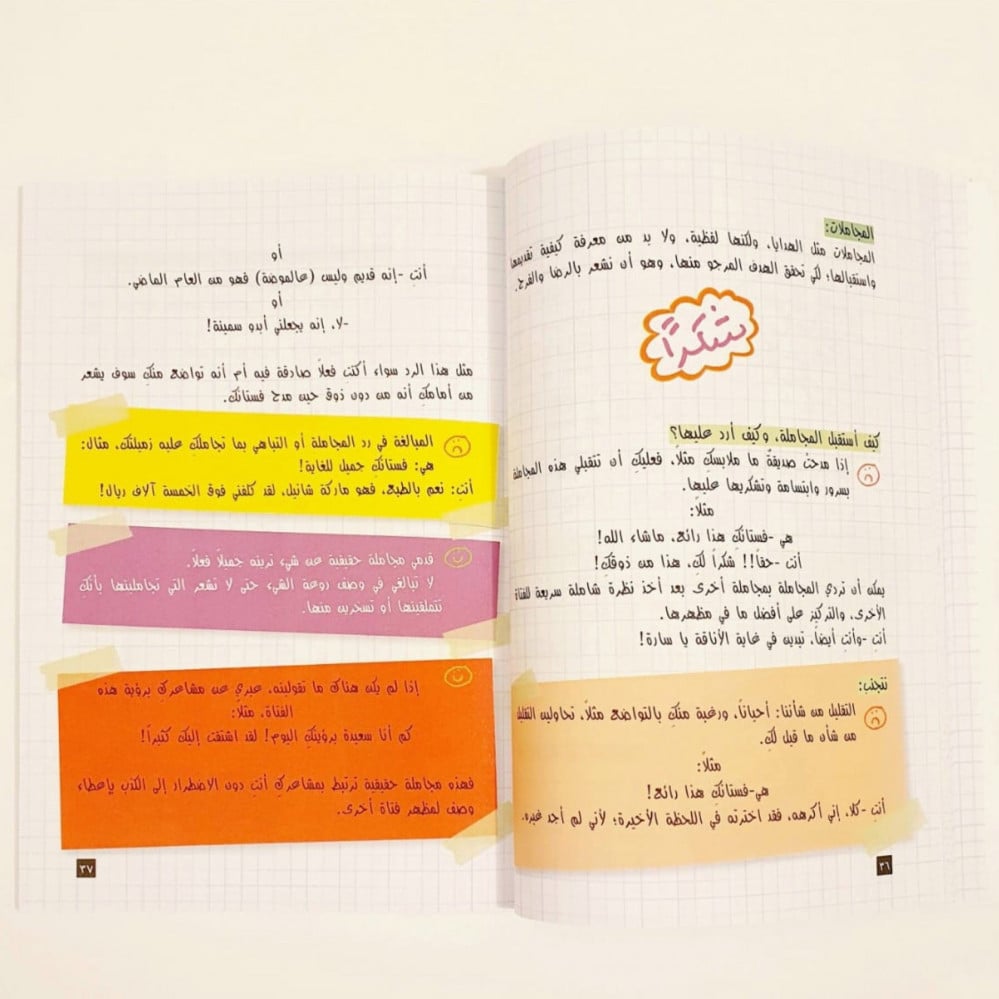 المجاملات:
المجاملات مثل الهدايا، ولكنها لفظية، ولا بد من معرفة كيفية تقديمها
واستقبالها؛ لكي تحقق الهدف المرجو منها، وهو أن نشعر بالرضا والفرح.
شكراً
كيف أستقبل المجاملة، وكيف أرد عليها؟
إذا مدحتْ صديقةٌ ما ملابسكِ مثلًا، فعليكِ أن تتقبلي هذه المجاملة
بسرور وابتسامة وتشكريها عليها.
مثلًا:
هي -فستانكِ هذا رائع، ماشاء الله!
أنتِ -حقاً!! شكراً لكِ، هذا من ذوقكِ!
يمكن أن تردي المجاملة بمجاملة أخرى بعد أخذ نظرة شاملة سريعة للفتاة
الأخرى، والتركيز على أفضل ما في مظهرها.
أنتِ -وأنتِ أيضاً، تبدين في غاية الأناقة يا سارة!
تتجنب:
التقليل من شأننا: أحياناً، ورغبة منكِ بالتواضع مثلًا، تحاولين التقليل
من شأن ما قيل لكِ.
مثلًا:
هي-فستانكِ هذا رائع!
أنتِ -كلا، إني أكرهه، فقد اخترته في اللحظة الأخيرة؛ لأني لم أجد غيره.
٣٦
أو
أنتِ -إنه قديم وليس (عالموضة) فهو من العام الماضي.
أو
-لا، إنه يجعلني أبدو سمينة!
مثل هذا الرد سواء أكنت فعلًا صادقة فيه أم أنه تواضع منكِ سوف يشعر
من أمامكِ أنه من دون ذوق حين مدح فستانكِ.
المبالغة في رد المجاملة أو التباهي بما تجاملكِ عليه زميلتكِ، مثال:
هي: فستانكِ جميل للغاية!
أنتِ: نعم بالطبع، فهو ماركة شانيل، لقد كلفني فوق الخمسة آلاف ريال!
قدمي مجاملة حقيقية عن شيء ترينه جميلًا فعلًا.
لا تبالغي في وصف روعة الشيء حتى لا تشعر التي تجاملينها بأنكِ
تتملقينها أو تسخرين منها.
إذا لم يكن هناك ما تقولينه، عبري عن مشاعركِ برؤية هذه
الفتاة، مثلًا:
كم أنا سعيدة برؤيتكِ اليوم! لقد اشتقت إليكِ كثيراً!
فهذه مجاملة حقيقية ترتبط بمشاعركِ أنتِ دون الاضطرار إلى الكذب بإعطاء
وصف لمظهر فتاة أخرى.
٣٧